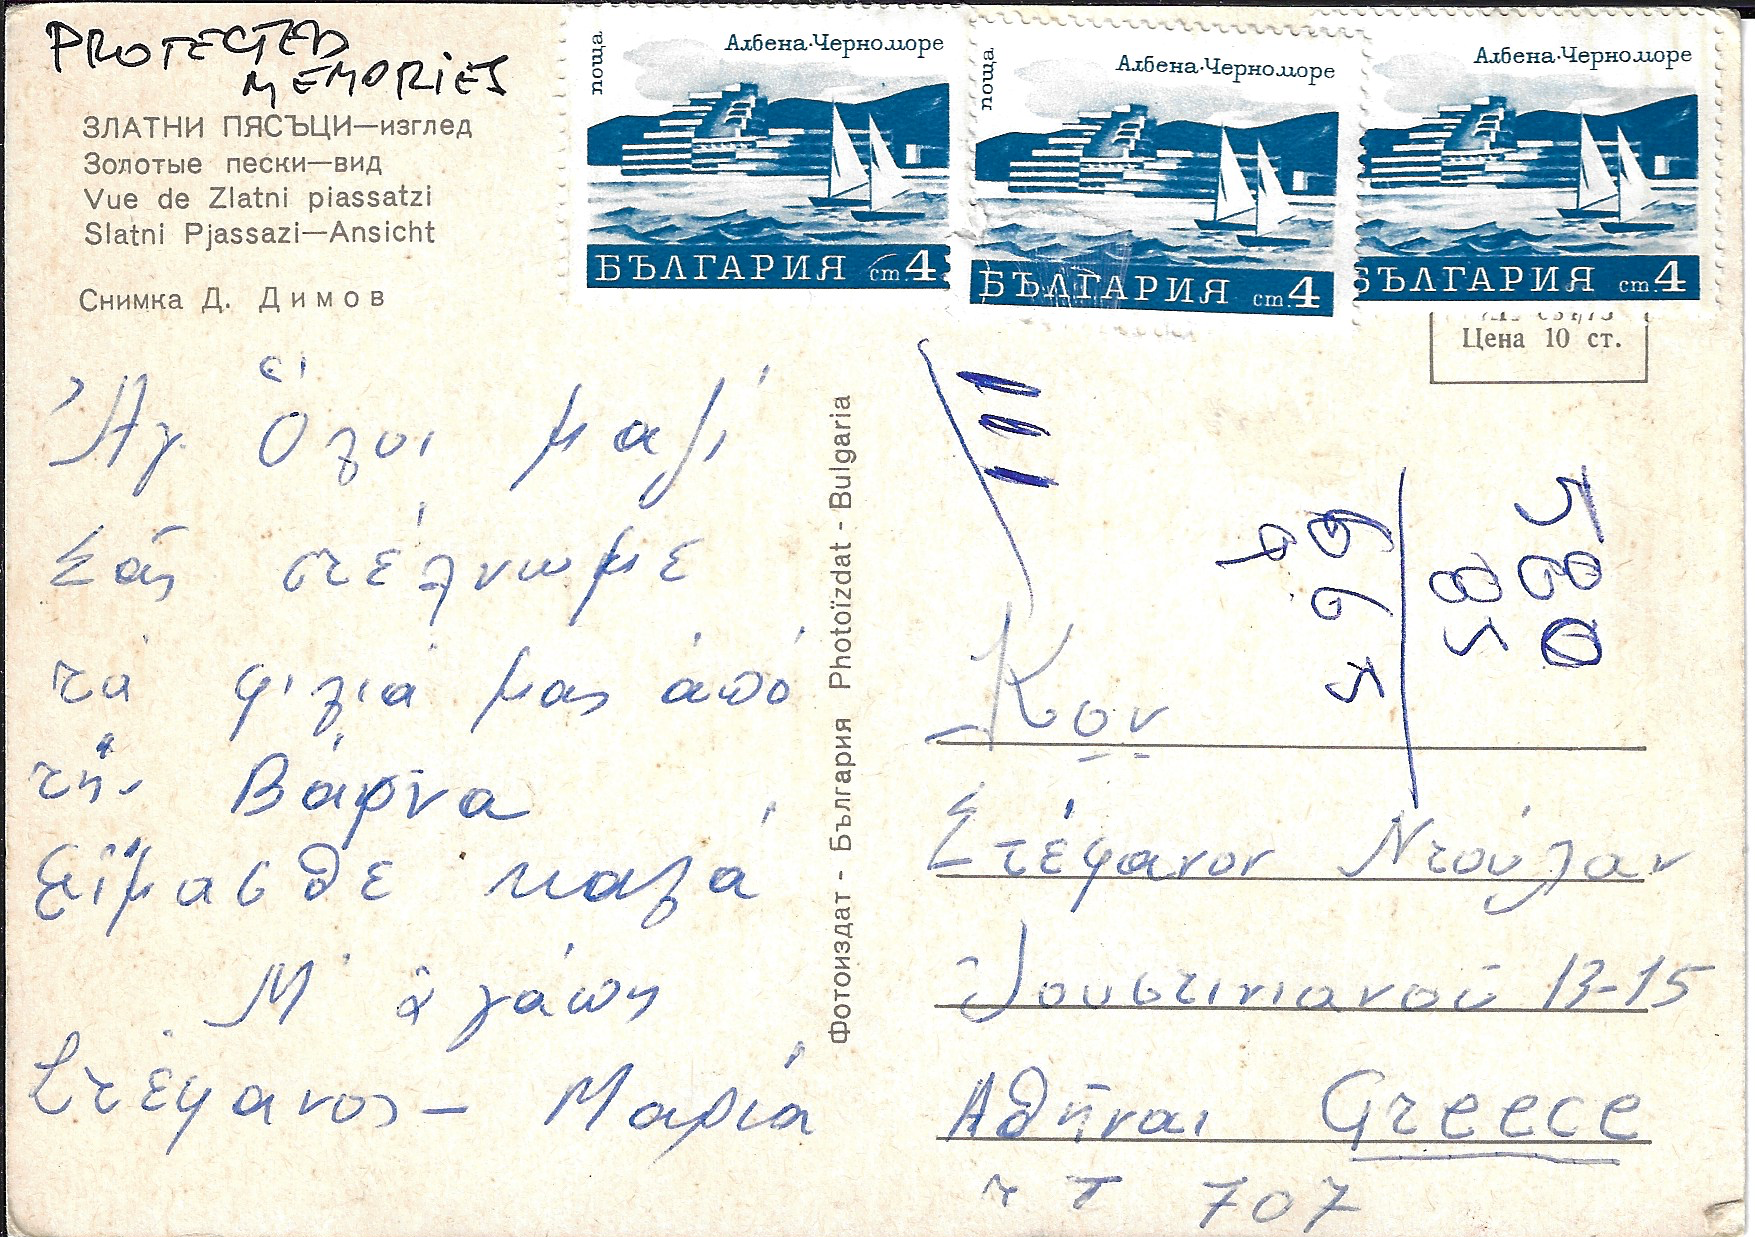 PROTECTED
MEMORIES
ЗЛАТНИ ПЯСЪЦИ—изглед
Золотые пески—вид
Vue de Zlatni piassatzi
Slatni Pjassazi—Ansicht
Снимка Д. Димов
поща
Албена·Черноморе
БЪЛГАРИЯ ст.4
поща
Албена·Черноморе
БЪЛГАРИЯ ст.4
Албена·Черноморе
БЪЛГАРИЯ ст.4
Цена 10 ст.
Ἀγ. Ὅλοι μαζί
Σᾶς στέλνωμε
τά φιλιά μας ἀπό
τήν Βάρνα
Εἴμασθε καλά
Μ' ἀγάπη
Στέφανος – Μαρία
Фотоиздат - България Photoïzdat - Bulgaria
580
85
665
9
Κον
Στέφανον Ντούλαν
Ἰουστινιανοῦ 13-15
Ἀθῆναι Greece
τ τ 707